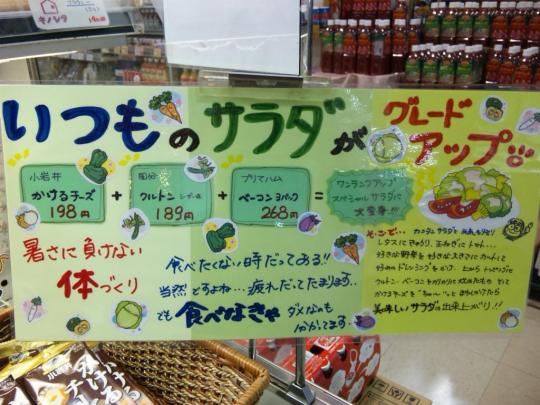 いつものサラダがグレードアップ
小岩井
かけるチーズ
198円
+
クルトン
189円
+
プリマハム
ベーコン3パック
268円
=
ワンランクアップ
スペシャルサラダに
大変身!!
暑さに負けない
体づくり
食べたくない時だってある!!
当然ですよね…疲れだってたまります..
でも食べなきゃダメなのも
わかってます..
そこで…
レタスにきゅうり、玉ねぎにトマト…
好きな野菜を好きな大きさにカットして
好みのドレッシングをかけ
クルトン、ベーコンをカリカリに炒めたもの そして
かけるチーズを
美味しいサラダの出来上がり!!